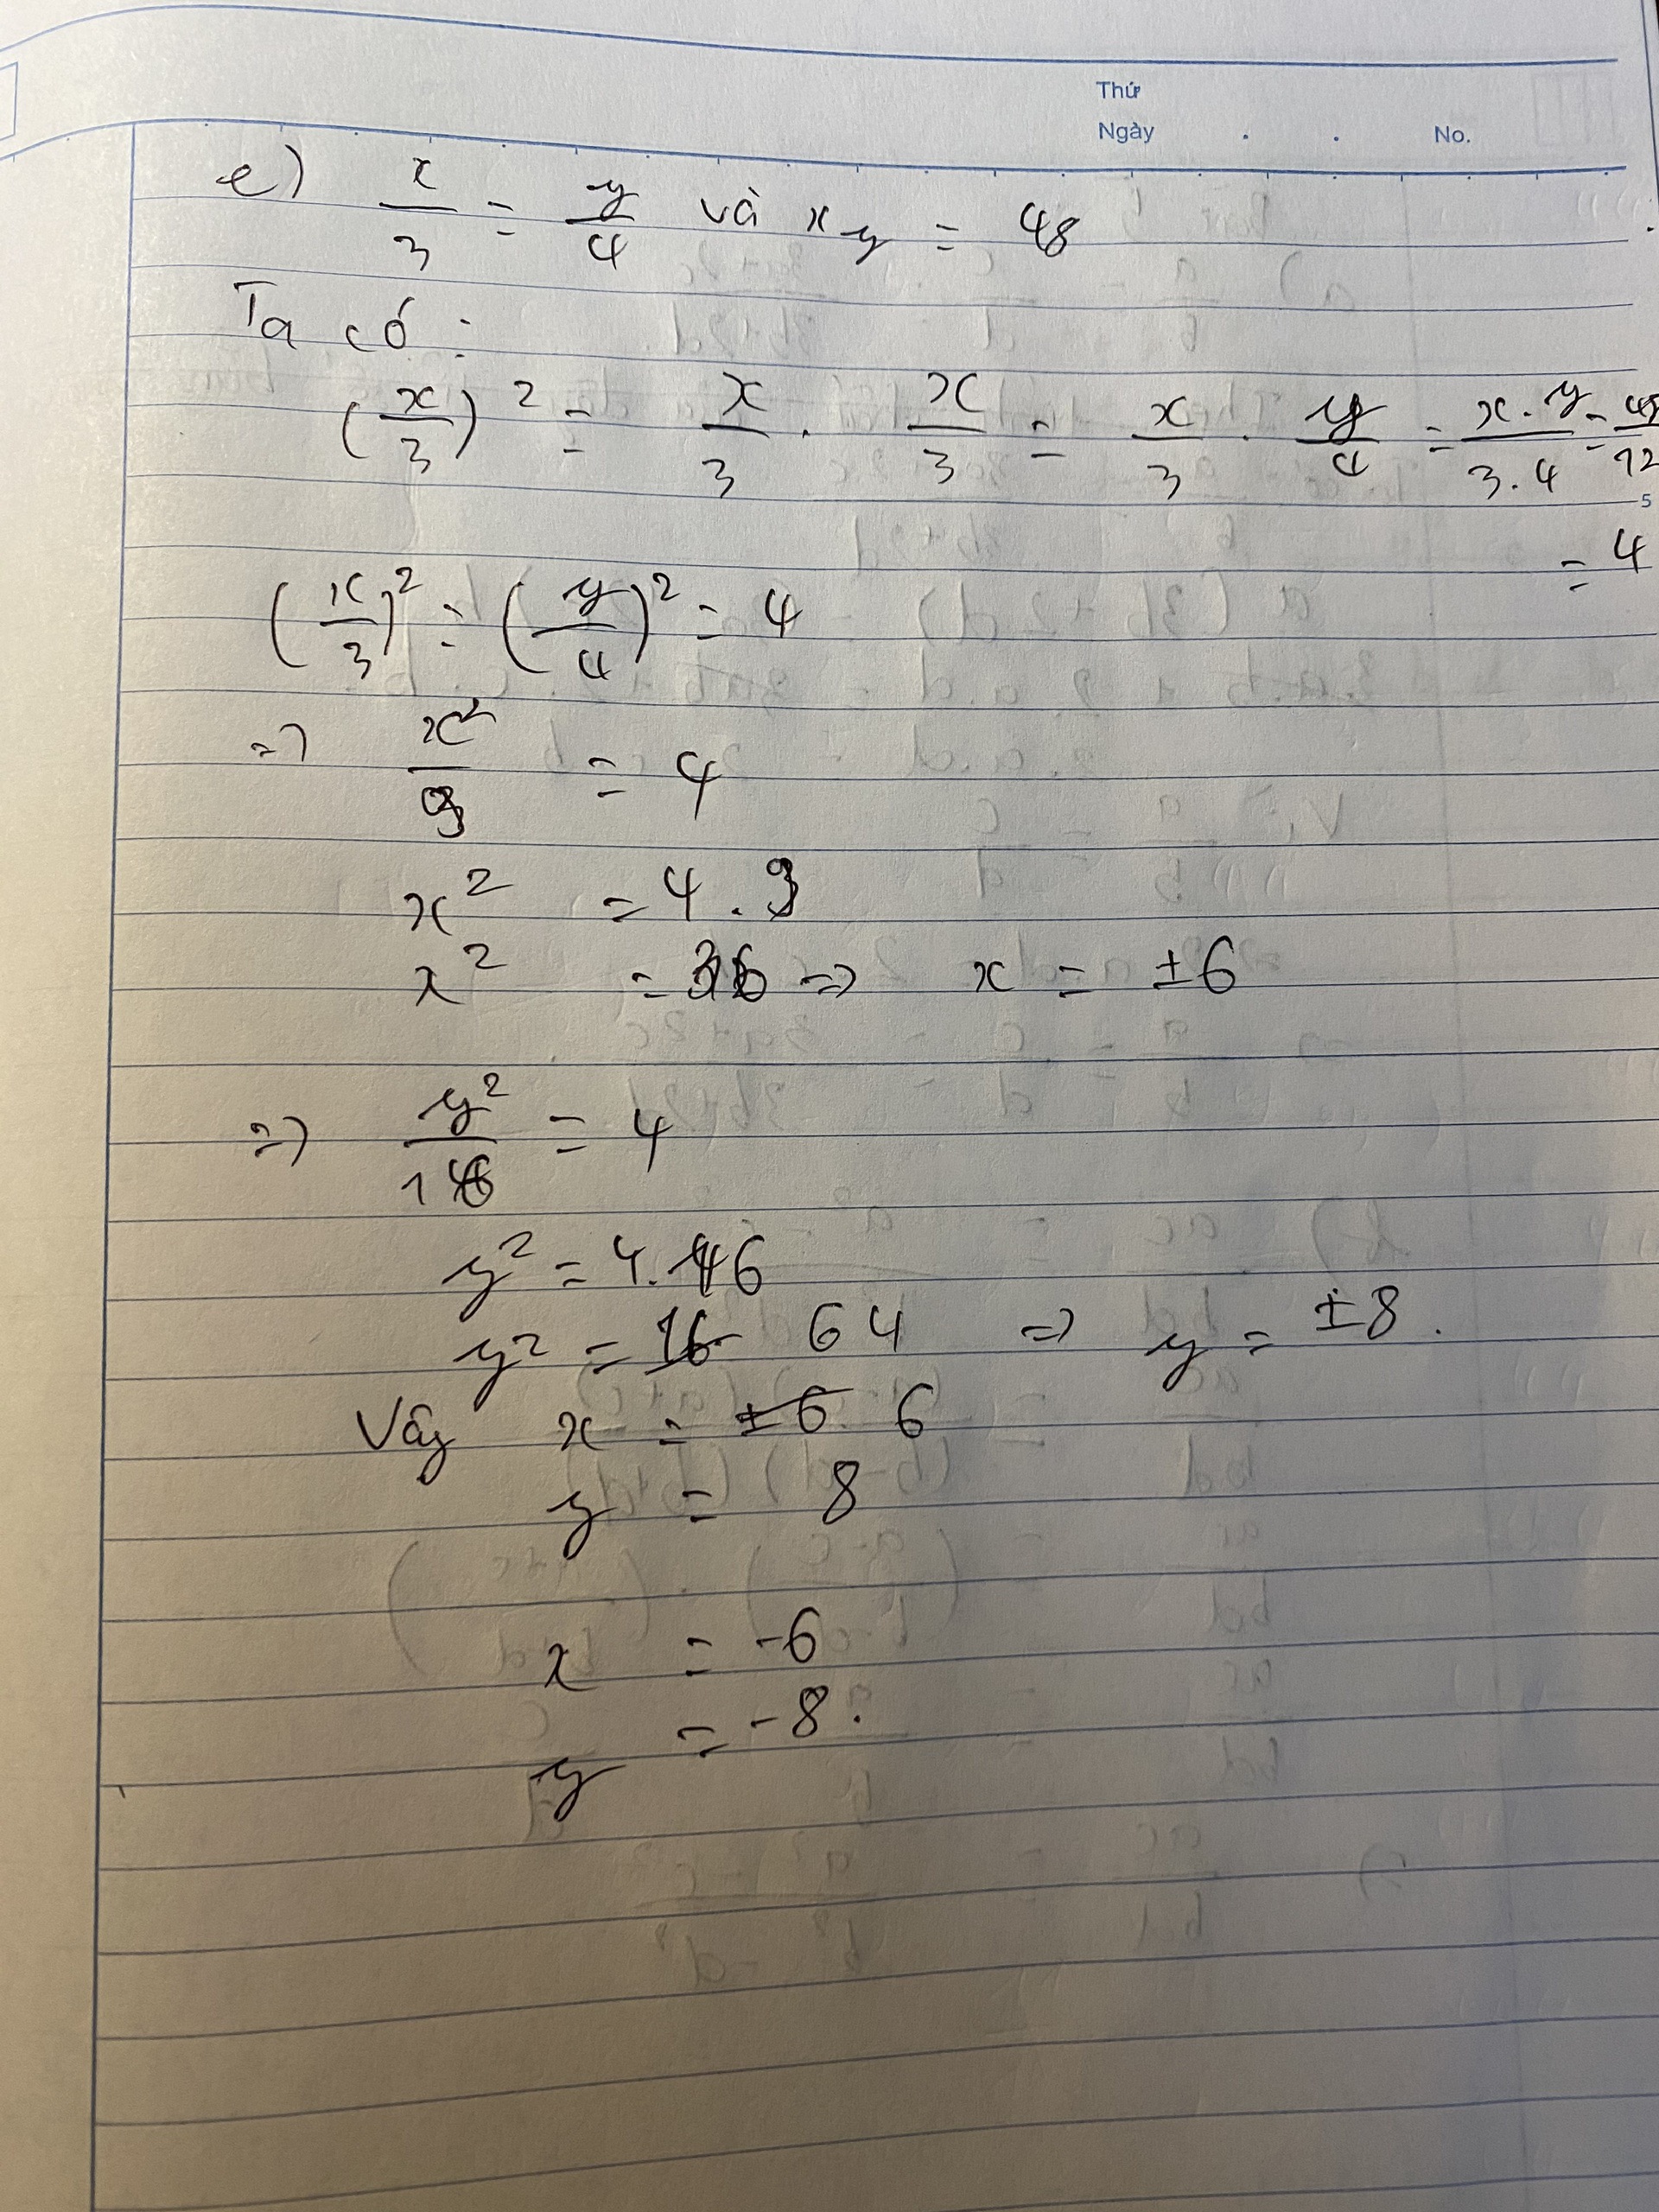 Thứ
Ngày . . No.
e) x/3 = y/4 và xy = 48
Ta có:
(x/3)² = x/3 . x/3 = x/3 . y/4 = x.y/3.4 = 48/12
5
= 4
(x/3)² = (y/4)² = 4
=> x²/9 = 4
x² = 4.9
x² = 36 => x = ±6
=> y²/16 = 4
y² = 4.16
y² = 16 64 => y = ±8.
Vậy x = ±6 6
y = 8
x = -6
y = -8.